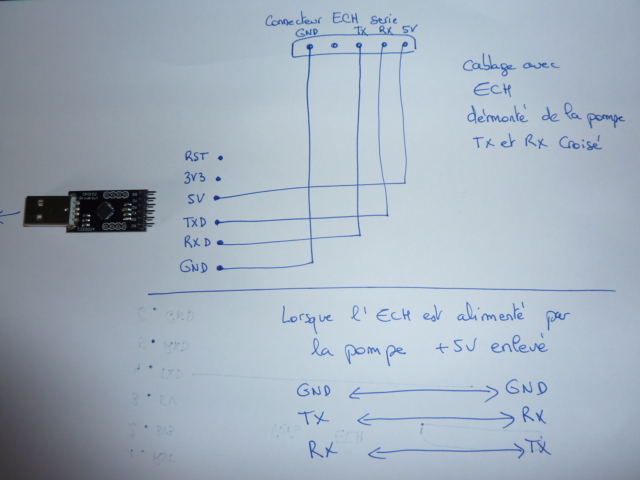 Connecteur ECH serie
GND TX RX 5V
Cablage avec
ECH
démonté de la pompe
Tx et Rx Croisé
RST
3V3
5V
TXD
RXD
GND
Lorsque l'ECH est alimenté par
la pompe +5V enlevé
GND GND
TX RX
RX TX